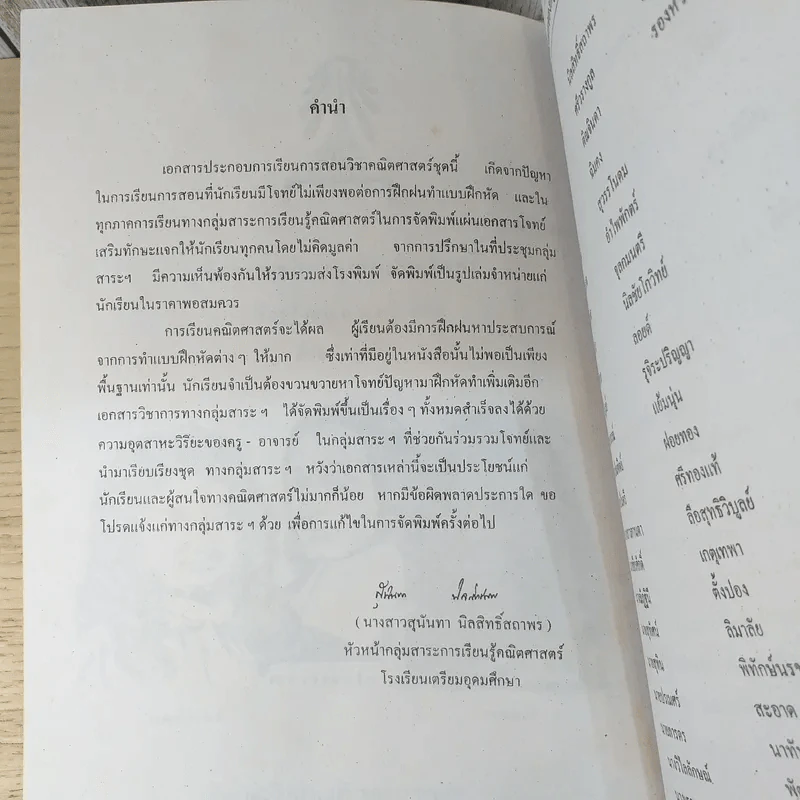 คำนำ
เอกสารประกอบการเรียนการสอนวิชาคณิตศาสตร์ชุดนี้ เกิดจากปัญหา
ในการเรียนการสอนที่นักเรียนมีโจทย์ไม่เพียงพอต่อการฝึกฝนทำแบบฝึกหัด และใน
ทุกภาคการเรียนทางกลุ่มสาระการเรียนรู้คณิตศาสตร์ในการจัดพิมพ์แผ่นเอกสารโจทย์
เสริมทักษะแจกให้นักเรียนทุกคนโดยไม่คิดมูลค่า จากการปรึกษาในที่ประชุมกลุ่ม
สาระฯ มีความเห็นพ้องกันให้รวบรวมส่งโรงพิมพ์ จัดพิมพ์เป็นรูปเล่มจำหน่ายแก่
นักเรียนในราคาพอสมควร
การเรียนคณิตศาสตร์จะได้ผล ผู้เรียนต้องมีการฝึกฝนหาประสบการณ์
จากการทำแบบฝึกหัดต่าง ๆ ให้มาก ซึ่งเท่าที่มีอยู่ในหนังสือนั้นไม่พอเป็นเพียง
พื้นฐานเท่านั้น นักเรียนจำเป็นต้องขวนขวายหาโจทย์ปัญหามาฝึกหัดทำเพิ่มเติมอีก
เอกสารวิชาการทางกลุ่มสาระ ฯ ได้จัดพิมพ์ขึ้นเป็นเรื่อง ๆ ทั้งหมดสำเร็จลงได้ด้วย
ความอุตสาหะวิริยะของครู - อาจารย์ ในกลุ่มสาระ ฯ ที่ช่วยกันร่วมรวมโจทย์และ
นำมาเรียบเรียงชุด ทางกลุ่มสาระ ฯ หวังว่าเอกสารเหล่านี้จะเป็นประโยชน์แก่
นักเรียนและผู้สนใจทางคณิตศาสตร์ไม่มากก็น้อย หากมีข้อผิดพลาดประการใด ขอ
โปรดแจ้งแก่ทางกลุ่มสาระ ฯ ด้วย เพื่อการแก้ไขในการจัดพิมพ์ครั้งต่อไป
( นางสาวสุนันทา นิลสิทธิ์สถาพร )
หัวหน้ากลุ่มสาระการเรียนรู้คณิตศาสตร์
โรงเรียนเตรียมอุดมศึกษา
นิลสิทธิ์สถาพร
จุลกมนตรี
นิลชัยโกวิทย์
ลอยด์
รุจิระปริญญา
แย้มนุ่น
ฝอยทอง
ศรีทองแท้
ลือสุทธิวิบูลย์
เกตุเทพา
ตั้งปอง
ลิมาลัย
สะอาด